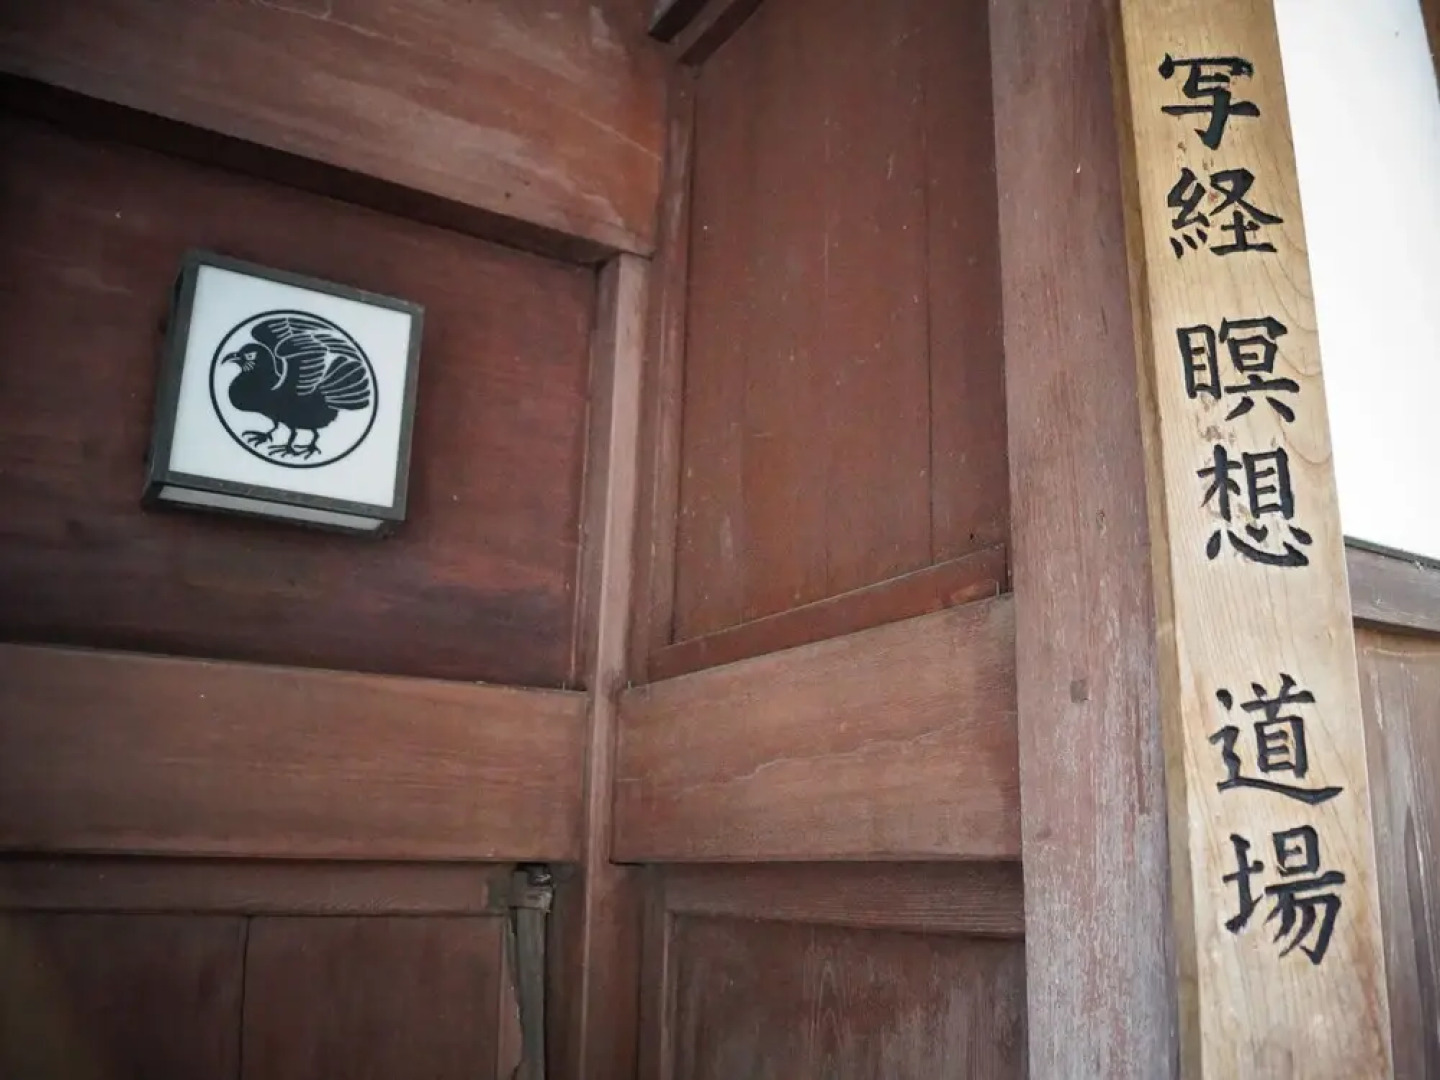 写経 瞑想 道場